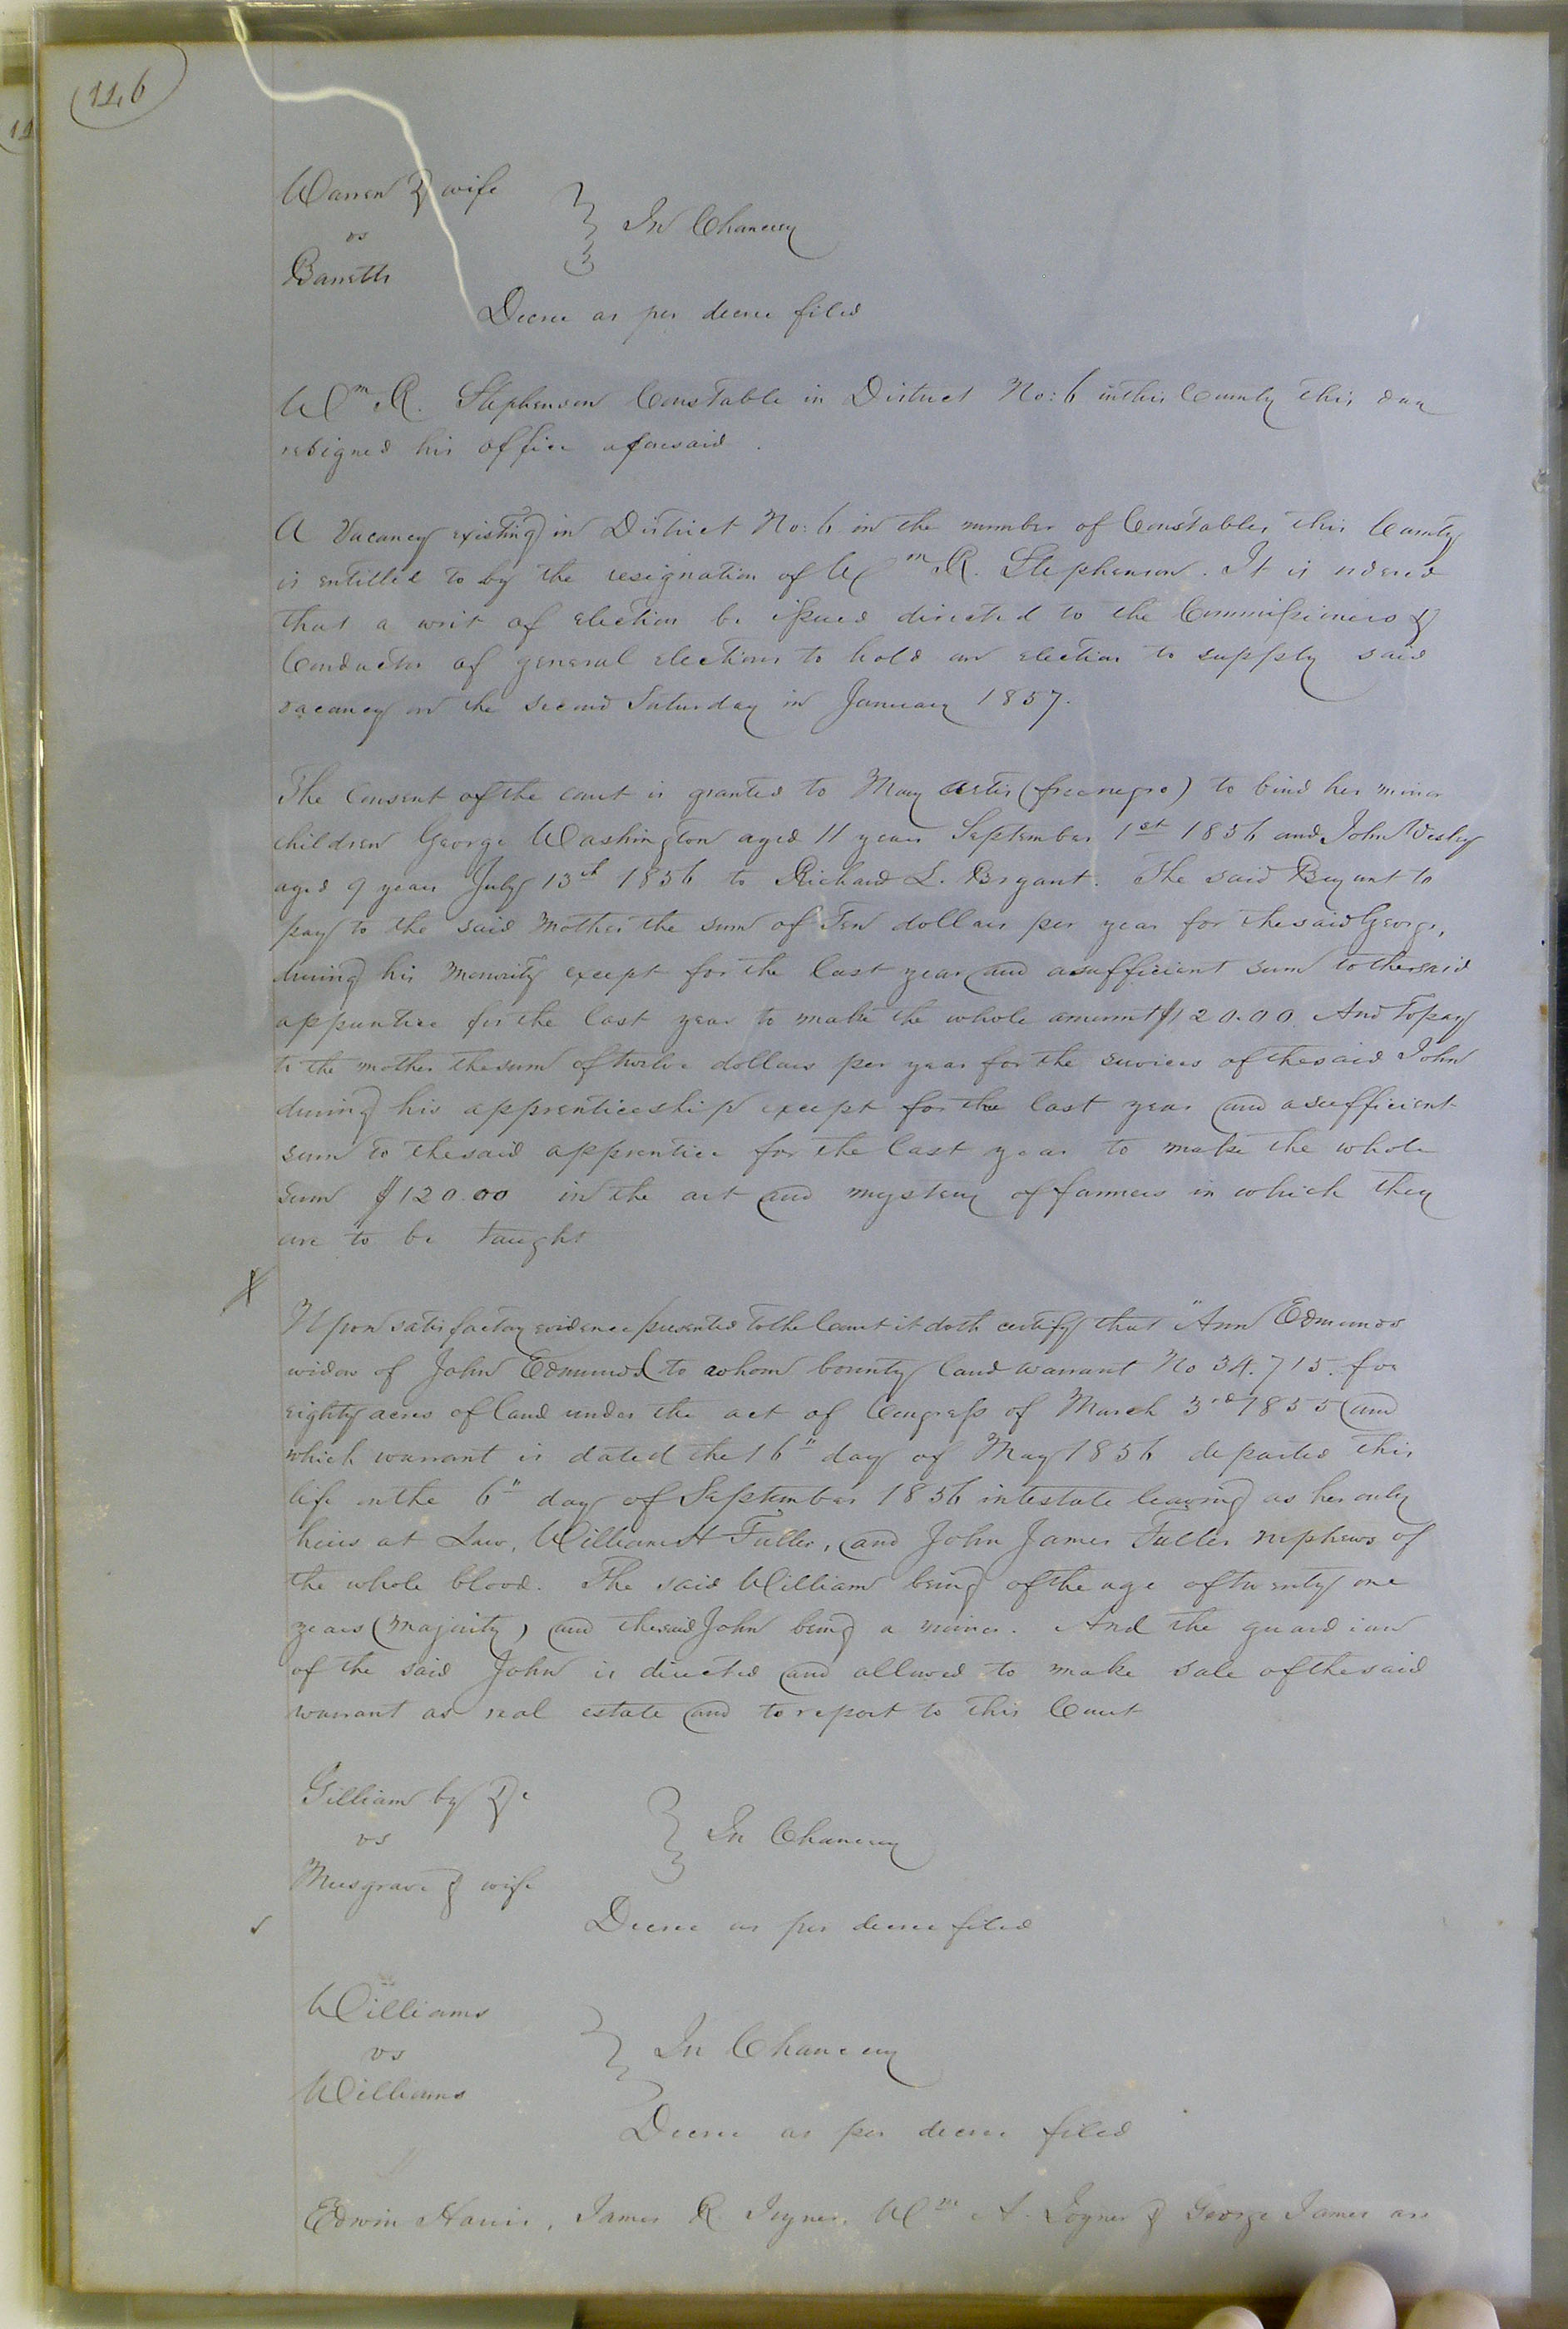 (146)
Warren & wife
vs
Barrett
In Chancery
Decree as per decree filed
Wm R. Stephenson Constable in District No: 6 in this County this day
resigned his office aforesaid.
A Vacancy existing in District No: 6 in the number of Constables this County
is entitled to by the resignation of Wm R. Stephenson. It is ordered
that a writ of election be issued directed to the Commissioners &
Conductor of general elections to hold an election to supply said
vacancy on the second Saturday in January 1857.
The Consent of the court is granted to Mary Artis (free negro) to bind her minor
children George Washington aged 11 years September 1st 1856 and John Wesley
aged 9 years July 13th 1856 to Richard L. Bryant. The said Bryant to
pay to the said Mother the sum of Ten dollars per year for the said George,
during his menority except for the last year and a sufficient sum to the said
apprentice for the last year to make the whole amount $120.00. And to pay
to the mother the sum of twelve dollars per year for the services of the said John
during his apprenticeship except for the last year and a sufficient
sum to the said apprentice for the last year to make the whole
sum $120.00 in the art and mystery of farmers in which they
are to be taught
X
Upon satisfactory evidence presented to the Court it doth certify that "Ann Edmunds
widow of John Edmunds to whom bounty land warrant No 34.715. for
eighty acres of land under the act of Congress of March 3rd 1855 and
which warrant is dated the 16" day of May 1856 departed this
life on the 6" day of September 1856 intestate leaving as her only
heirs at Law, William H Fuller, and John James Fuller nephews of
the whole blood. The said William being of the age of twenty one
years (majority) and the said John being a minor. And the guardian
of the said John is directed and allowed to make sale of the said
warrant as real estate and to report to this Court
Gilliam by &c
vs
Musgrave & wife
In Chancery
Decree as per decree filed
Williams
vs
Williams
In Chancery
Decree as per decree filed
Edwin Harris, James R. Joyner, Wm A. Joyner & George James are